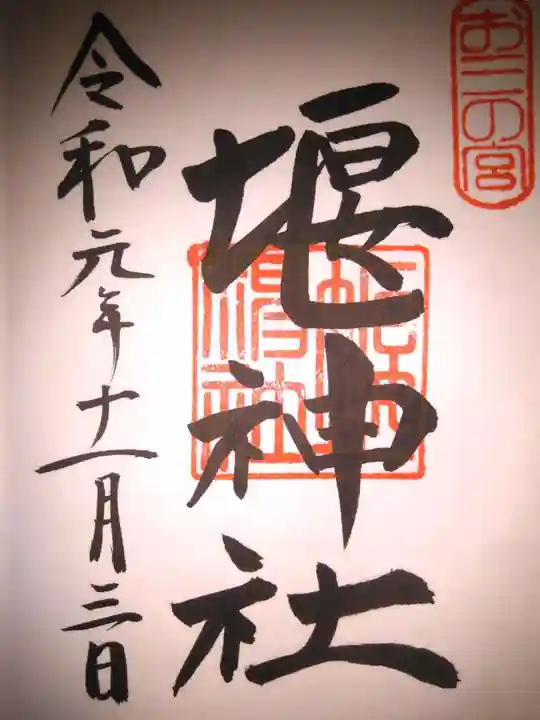 お三の宮
堰神社
令和元年十一月三日